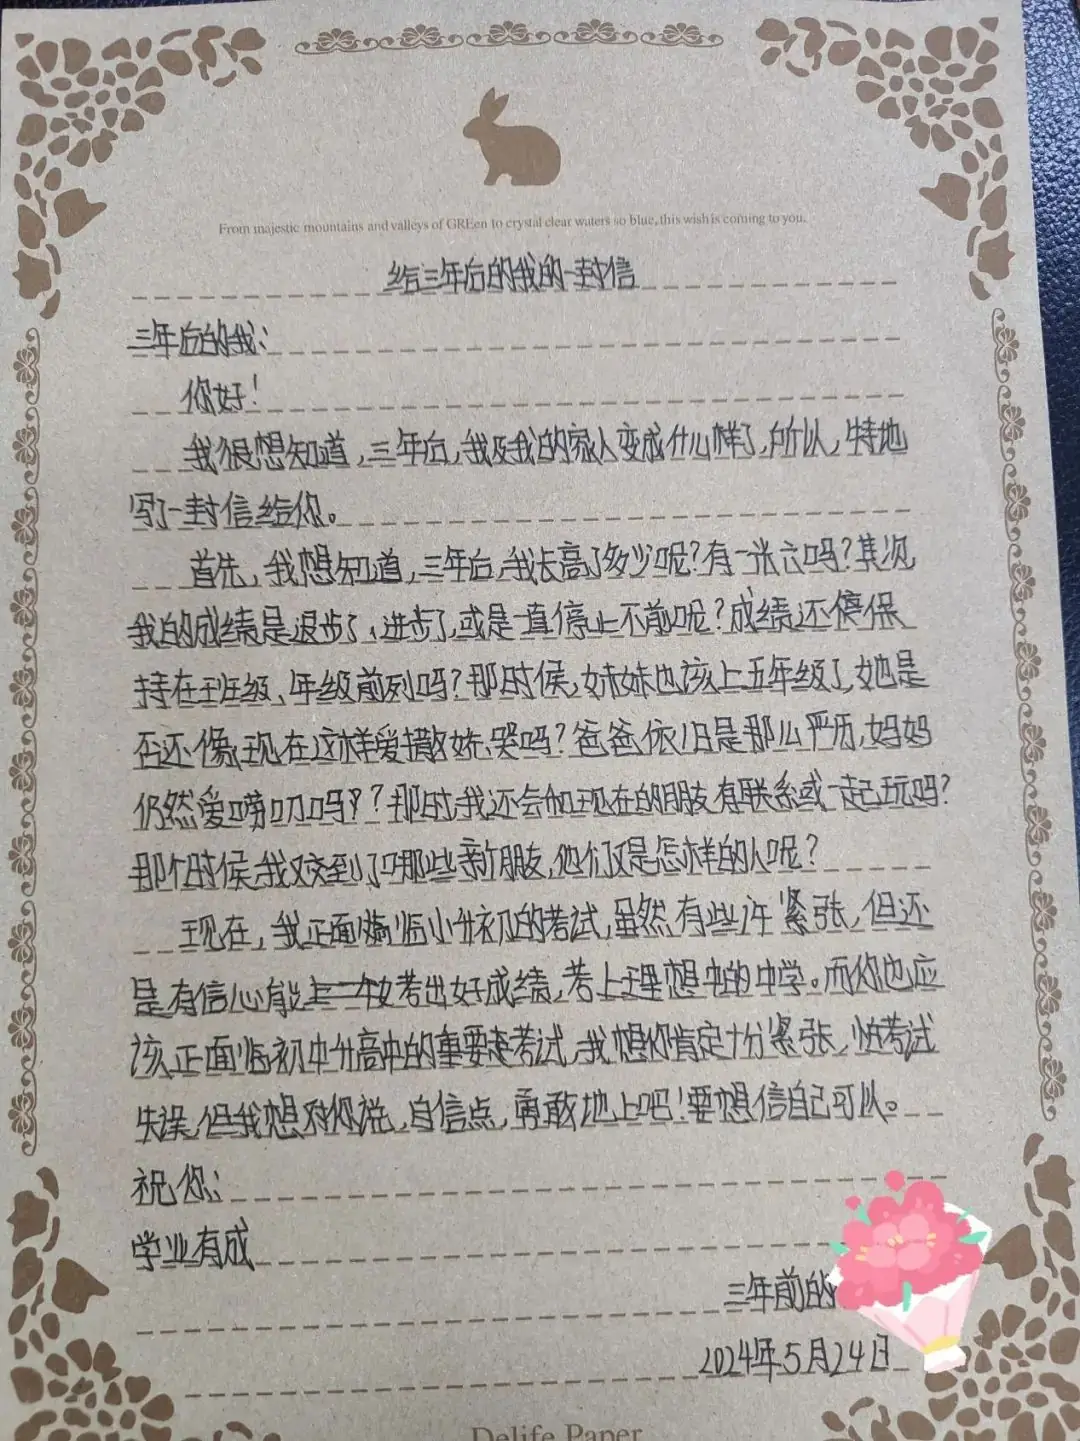 From majestic mountains and valleys of GREen to crystal clear waters so blue, this wish is coming to you.
给三年后的我的一封信
三年后的我：
你好！
我很想知道，三年后，我及我的家人变成什么样了，所以，特地
写了一封信给你。
首先，我想知道，三年后，我长高了多少呢？有一米六吗？其次，
我的成绩是退步了、进步了，或是一直停止不前呢？成绩还停保
持在班级、年级前列吗？那时候，妹妹也该上五年级了，她是
否还像现在这样爱撒娇、哭吗？爸爸依旧是那么严历，妈妈
仍然爱唠叨吗？？那时，我还会和现在的朋友有联系或一起玩吗？
那个时候，我又交到了哪些新朋友，他们又是怎样的人呢？
现在，我正面临小升初的考试，虽然有些许紧张，但还
是有信心能考出好成绩，考上理想中的中学。而你也应
该正面临初中升高中的重要考试，我想你肯定十分紧张，怕考试
失误，但我想对你说，自信点，勇敢地上吧！要想信自己可以。
祝你：
学业有成
三年前的
2024年5月24日
Delife Paper